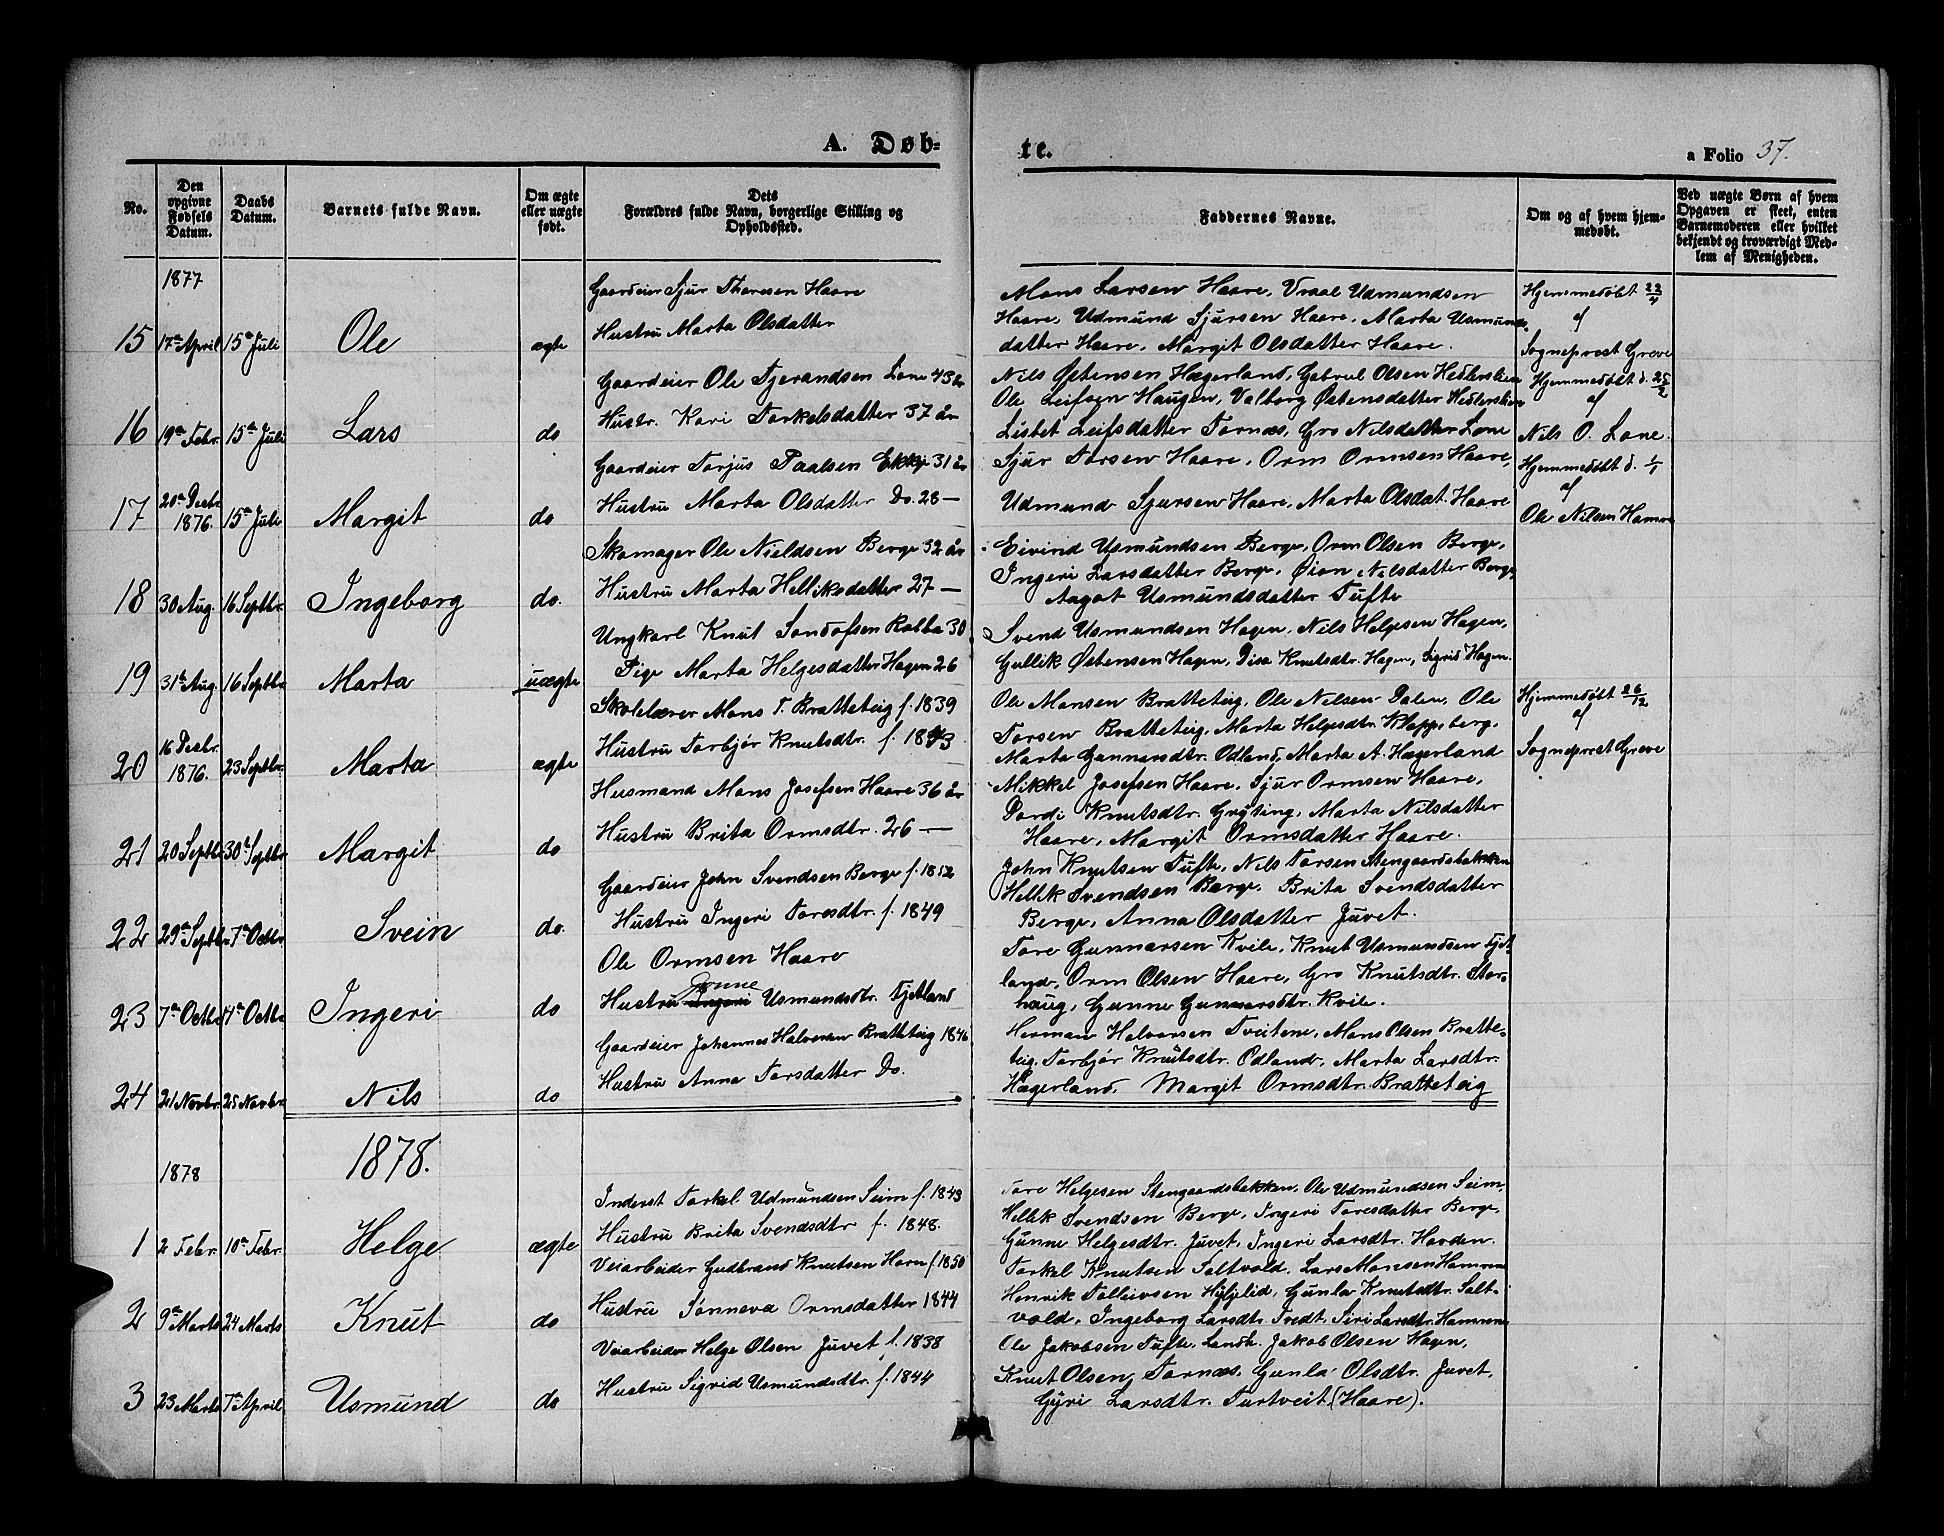 A. Døb-
te.
a Folio 37.
No.
Den opgivne Fødsels Datum.
Daabs Datum.
Barnets fulde Navn.
Om ægte eller uægte født.
Dets Forældres fulde Navn, borgerlige Stilling og Opholdssted.
Faddernes Navne.
Om og af hvem hjemmedøbt.
Ved uægte Børn af hvem Opgaven er skeet, enten Barnemoderen eller hvilket bekjendt og troværdigt Medlem af Menigheden.
1877
15 17de April 15de Juli Ole ægte
Gaardeier Sjur Thoresen Haare
Hustru Marta Olsdatter
Mons Larsen Haare, Vraal Udmundsen
Haare, Udmund Sjursen Haare, Marta Usmunds
datter Haare, Margit Olsdatter Haare.
Hjemmedøbt 22/4
af
Sogneprest Greve
16 19de Febr. 15de Juli Lars do
Gaardeier Ole Tjerandsen Lone 43 år
Hustr. Kari Torkelsdatter 37 år
Nils Østensen Hægerland, Gabriel Olsen Hedlerslien
Ole Leifsen Haugen, Valborg Østensdatter Hedlerslien
Lisbet Leifsdatter Tornæs, Gro Nilsdatter Lone
Hjemmedøbt d. 25/2
af
Nils O. Lone.
17 20de Decbr. 1876. 15de Juli Margit do
Gaardeier Torjus Paalsen Ekkje 31 år
Hustru Marta Olsdatter Do. 28 —
Sjur Torsen Haare, Orm Ormsen Haare,
Udmund Sjursen Haare, Marta Olsdat. Haare
Hjemmedøbt d. 1/1
af
Ole Nilsen Hamre
18 30 Aug. 16 Septbr. Ingeborg do.
Skomager Ole Nieldsen Berge 32 år
Hustru Marta Helliksdatter 27 —
Eivind Usmundsen Berge, Orm Olsen Berge,
Ingeri Larsdatter Berge, Øion Nilsdatter Berge,
Aagot Usmundsdatter Tufte
19 31te Aug. 16 Septbr. Marta uægte
Ungkarl Knut Sondofsen Rabba 30
Pige Marta Helgesdatter Hagen 26
Svend Usmundsen Hagen, Nils Helgesen Hagen,
Gullik Østensen Hagen, Disa Knutsdtr. Hagen, Sigrid Hagen.
20 16 Decbr. 1876. 23 Septbr. Marta ægte
Skolelærer Mons T. Bratteteig f. 1839
Hustru Torbjør Knutsdtr. f. 1843
Ole Monsen Bratteteig, Ole Nilsen Dalen, Ole
Torsen Bratteteig, Marta Helgesdtr. Kloppeberg.
Marta Gunnarsdtr. Odland, Marta A. Hægerland
Hjemmedøbt 26/12
af
Sogneprest Greve
21 20 Septbr. 30te Septbr. Margit do
Husmand Mons Josefsen Haare 36 år
Hustru Brita Ormsdtr. 26 —
Mikkel Josefsen Haare, Sjur Ormsen Haare,
Dordi Knutsdtr. Grÿting, Marta Nilsdatter
Haare, Margit Ormsdatter Haare.
22 29de Septbr. 7de Octbr. Svein do.
Gaardeier John Svendsen Berge f. 1852
Hustru Ingeri Toresdtr. f. 1849
John Knutsen Tufte, Nils Torsen Stengaardsbakken
Hellik Svendsen Berge, Brita Svendsdatter
Berge, Anna Olsdatter Juvet.
23 7de Octbr. 14de Octbr. Ingeri do
Ole Ormsen Haare
Gonne
Hustru Ingeri Usmundsdtr. Fjetland
Tore Gunnarsen Kvile, Knut Usmundsen Fjet
land, Orm Olsen Haare, Gro Knutsdtr. Stor-
haug, Gunne Gunnarsdtr. Kvile.
24 21 Novbr. 25 Novbr. Nils do
Gaardeier Johannes Halvorsen Bratteteig 1846
Hustru Anna Torsdatter Do.
Herman Halvorsen Tveitene, Mons Olsen Bratte-
teig, Torbjør Knutsdtr. Odland, Marta Larsdtr.
Hægerland, Margit Ormsdtr. Bratteteig
1878 1878.
1 2 Febr. 10de Febr. Helge ægte
Inderst Torkel Udmundsen Seim f. 1843
Hustru Brita Svendsdtr f. 1848.
Tore Helgesen Stengaardsbakken, Ole Udmundsen Seim,
Hellik Svendsen Berge, Ingeri Toresdatter Berge,
Gunne Helgesdtr. Juvet, Ingeri Larsdtr. Havden.
2 9de Marts 24 Marts Knut do
Veiarbeider Gudbrand Knutsen Horn f. 1850
Hustru Sønneva Ormsdatter 1844
Torkel Knutsen Saltvold, Lars Monsen Hamre
Henrik Tolleivsen Hyljelid, Gunla Knutsdtr. Salt-
vold, Ingeborg Larsdtr. Tvedt, Siri Larsdtr. Hamre
3 23 Marts 7de April Usmund do
Veiarbeider Helge Olsen Juvet f. 1838
Hustru Sigrid Usmundsdtr. f. 1844
Ole Jakobsen Tufte, Landh. Jakob Olsen Hagen,
Knut Olsen Tornæs, Gunla Olsdtr. Juvet,
Gÿri Larsdtr. Turtveit (Haare).